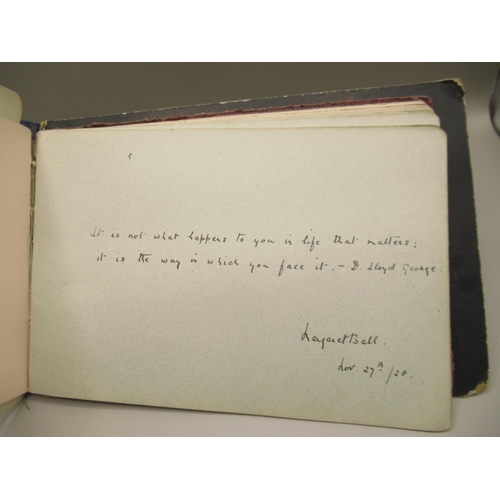 It is not what happens to you in life that matters;
it is the way in which you face it. – D. Lloyd George.
Margaret Ball.
Nov 27th/20.